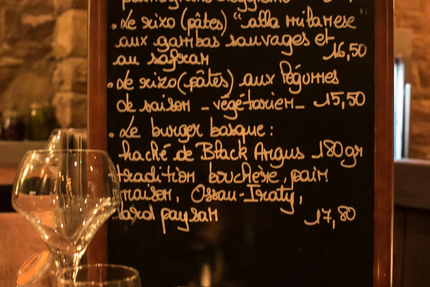 • Le rizo (pâtes) "alla milanese
aux gambas sauvages et
au safran 16,50
• Le rizo (pâtes) aux légumes
de saison - végétarien - 15,50
• Le burger basque :
haché de Black Angus 180gr
tradition bouchère, pain
maison, Ossau-Iraty,
lard paysan 17,80